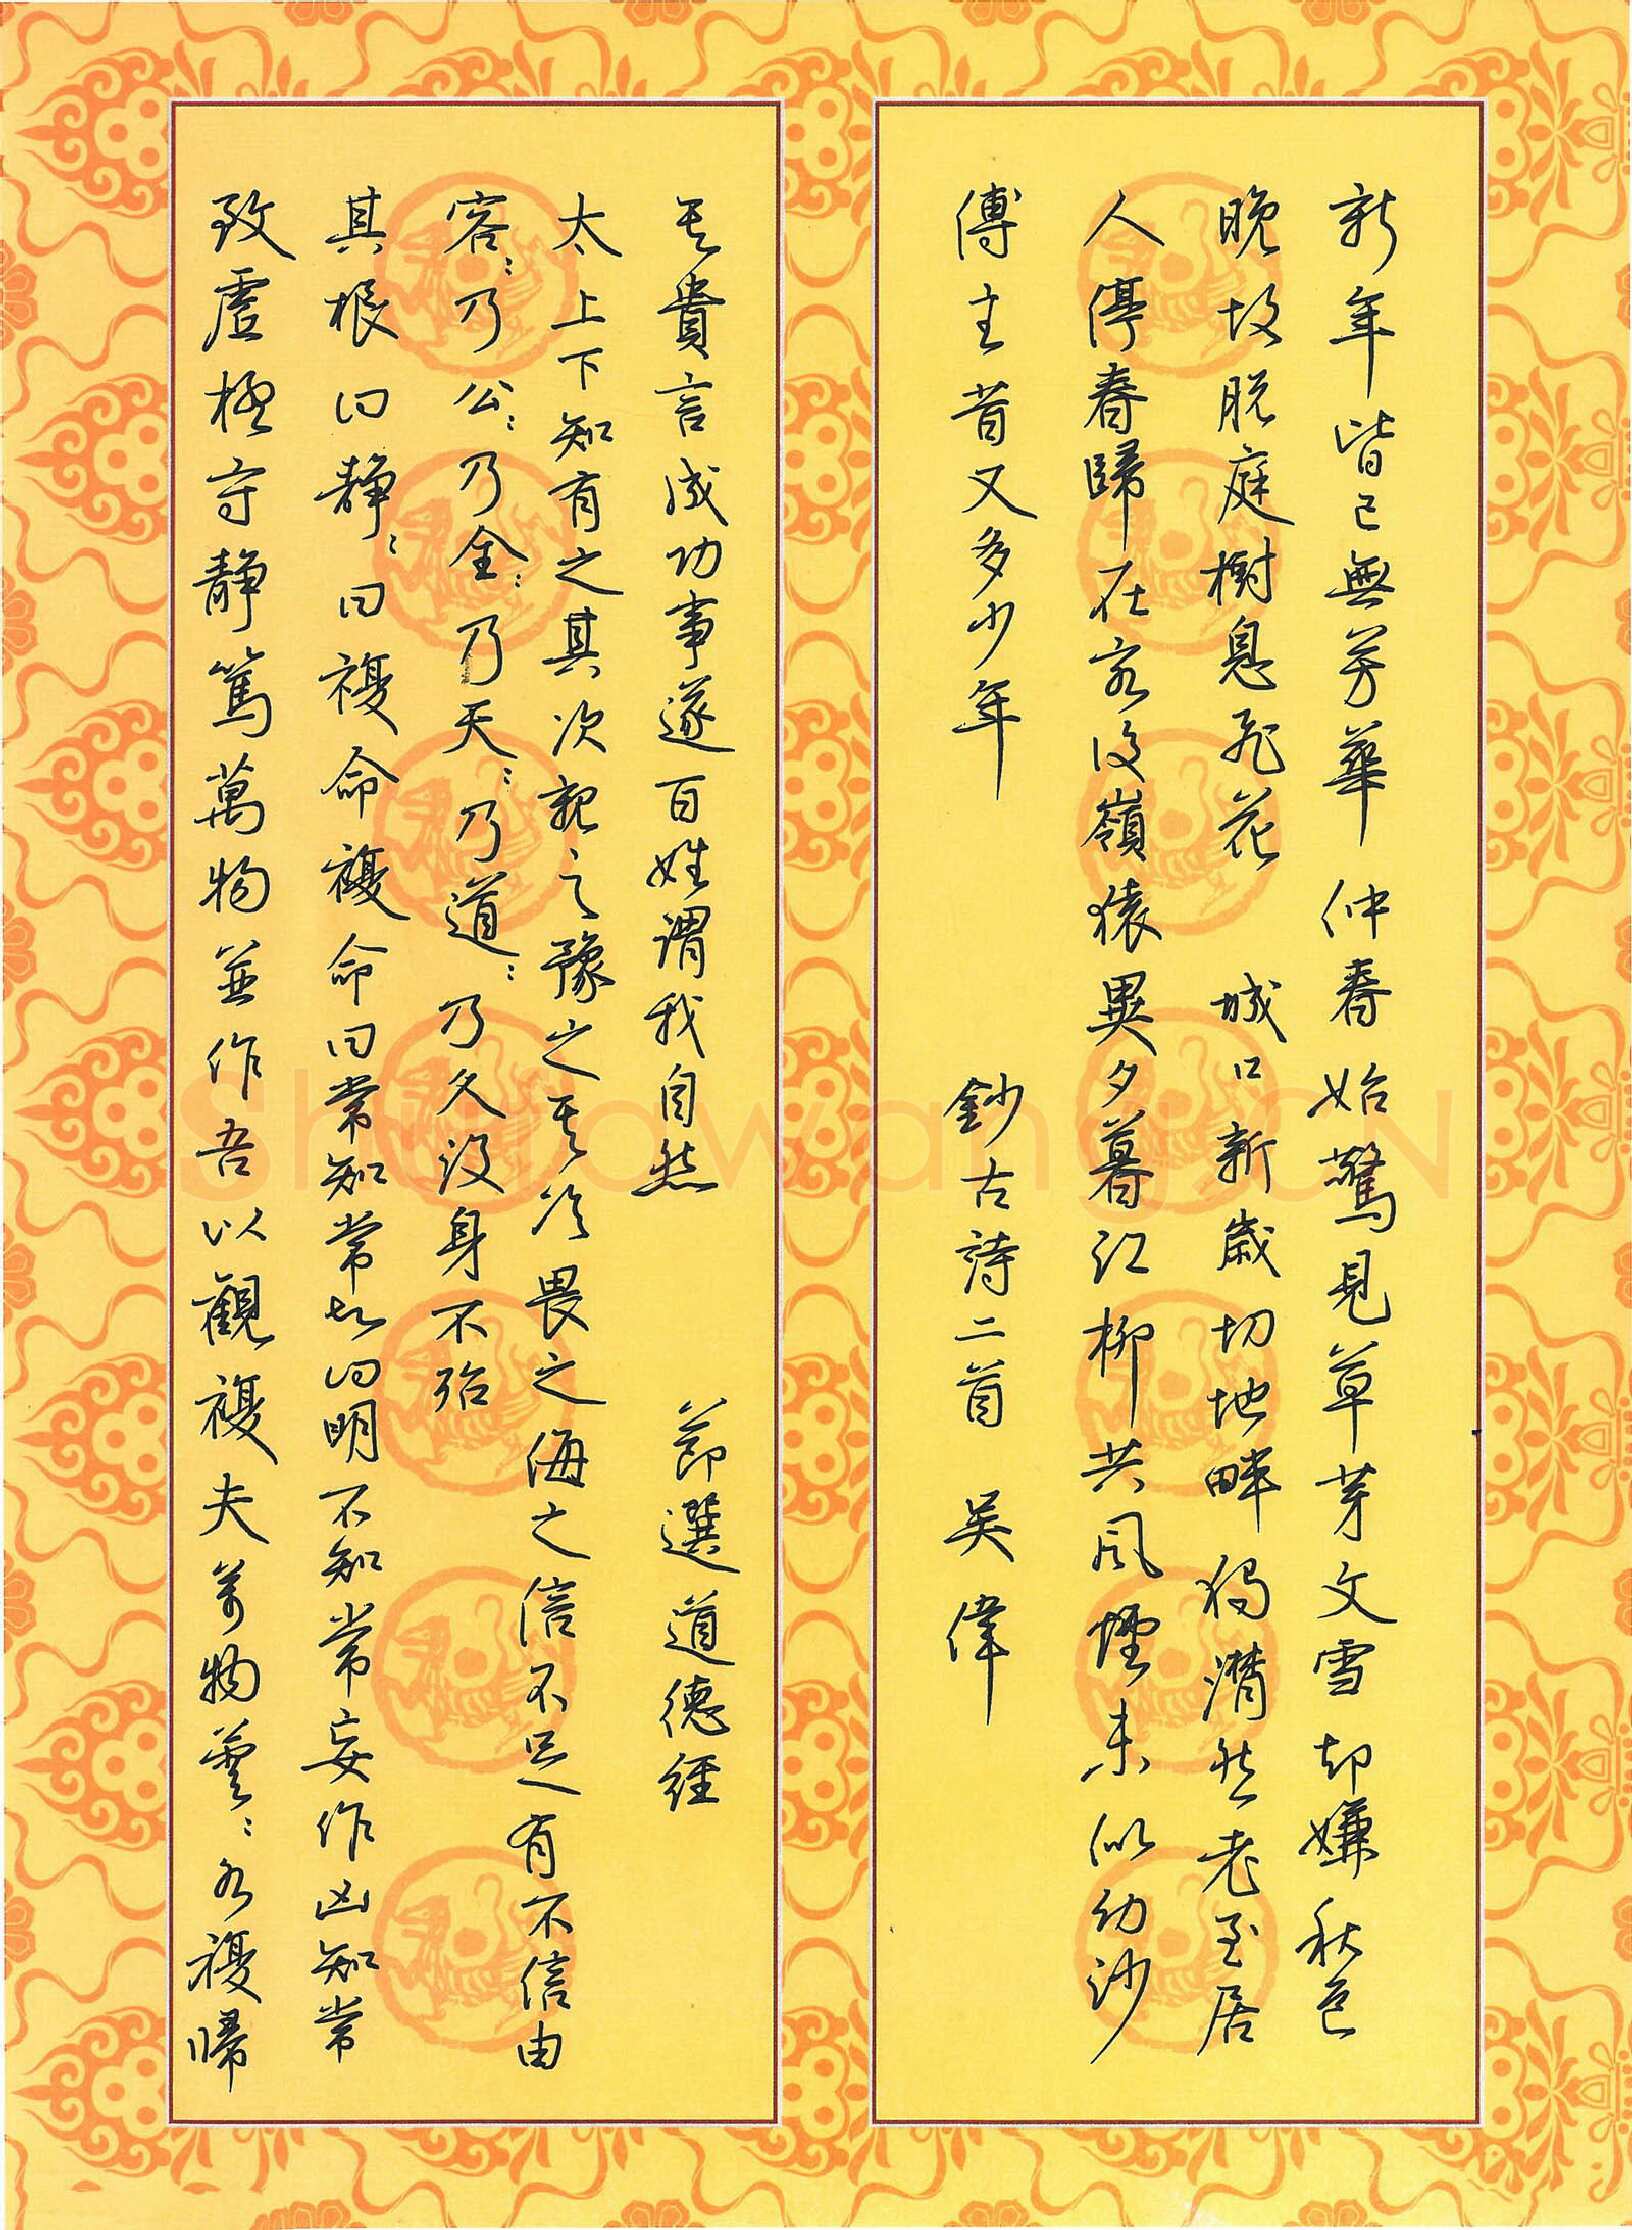 新年皆已無芳華仲春始驚見草芽文雪却嫌秋色
晚故脱庭樹息飛花 城口新歲切地畔獨潸然老至居
人停春歸在客後嶺猿異夕暮江柳共風煙未似幼沙
傅主昔又多少年 鈔古詩二首 吳偉
致虛極守靜篤萬物並作吾以觀複夫萬物蕓〻各複歸
其根曰静〻曰複命複命曰常知常知曰明不知常妄作凶知常
容〻乃公〻乃全〻乃天〻乃道〻乃久没身不殆
太上下知有之其次親之豫之其次畏之侮之信不足有不信由
其貴言成功事遂百姓謂我自然 節選道德經